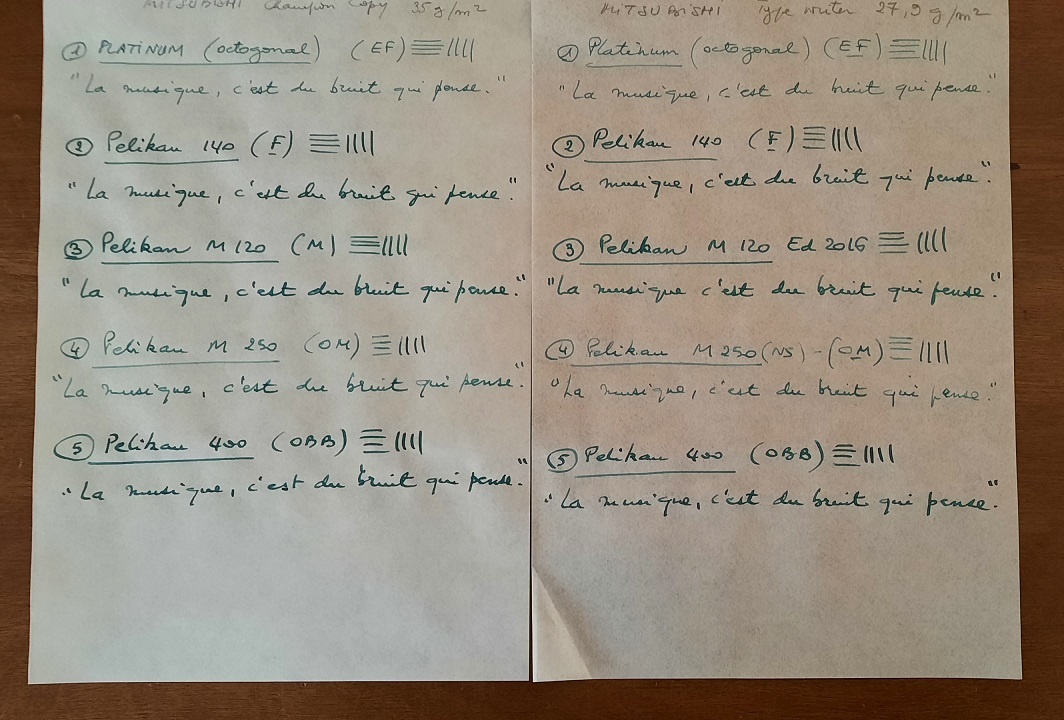 MITSUBISHI Champion Copy 35 g/m²
① PLATINUM (octogonal) (EF)
"La musique, c'est du bruit qui pense."
② Pelikan 140 (F)
"La musique, c'est du bruit qui pense."
③ Pelikan M 120 (M)
"La musique, c'est du bruit qui pense."
④ Pelikan M 250 (OM)
"La musique, c'est du bruit qui pense."
⑤ Pelikan 400 (OBB)
"La musique, c'est du bruit qui pense."
MITSUBISHI Type writer 27,9 g/m²
① Platinum (octogonal) (EF)
"La musique, c'est du bruit qui pense."
② Pelikan 140 (F)
"La musique, c'est du bruit qui pense".
③ Pelikan M 120 Ed 2016
"La musique c'est du bruit qui pense".
④ Pelikan M 250 (NS) - (OM)
"La musique, c'est du bruit qui pense."
⑤ Pelikan 400 (OBB)
"La musique, c'est du bruit qui pense."